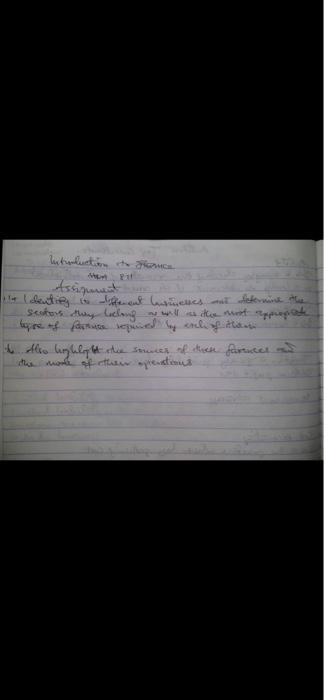 Introduction to Finance
Assignment
Identify 10 different businesses and determine the
sectors they belong as well as the most appropriate
type of finance required by each of them.
b Also highlight the sources of these finances and
the mode of their operations